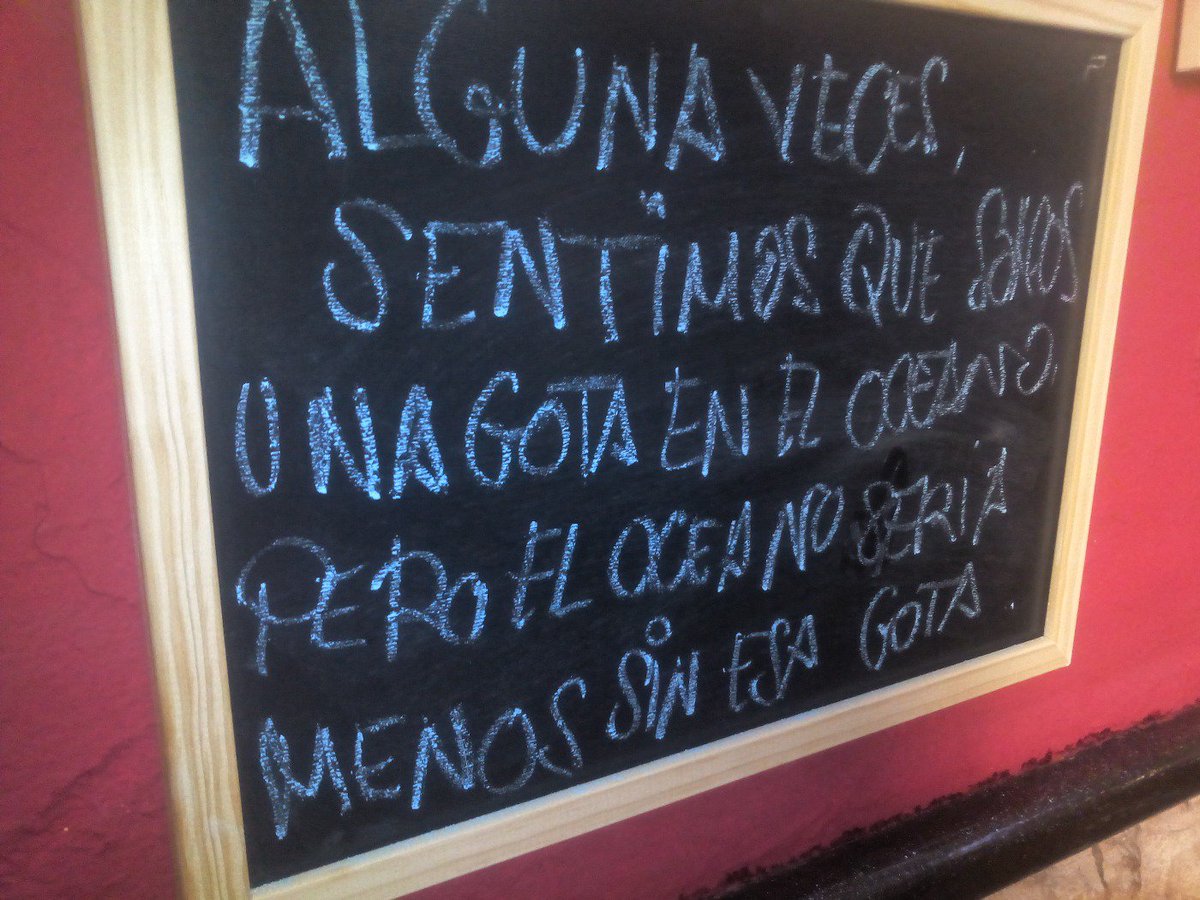 ALGUNA VECES,
SENTIMOS QUE SOMOS
UNA GOTA EN EL OCEANO,
PERO EL OCEANO SERIA
MENOS SIN ESA GOTA.